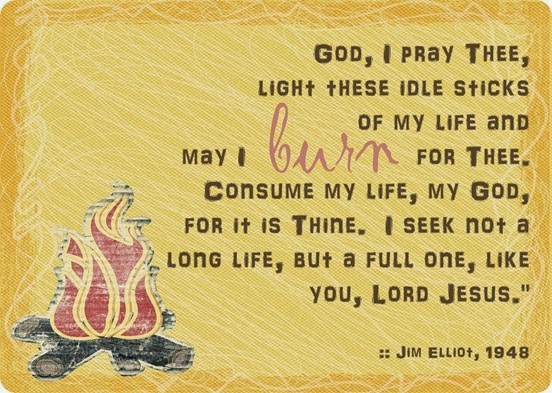 God, I pray Thee,
light these idle sticks
of my life and
may I burn for Thee.
Consume my life, my God,
for it is Thine. I seek not a
long life, but a full one, like
you, Lord Jesus."
:: Jim Elliot, 1948